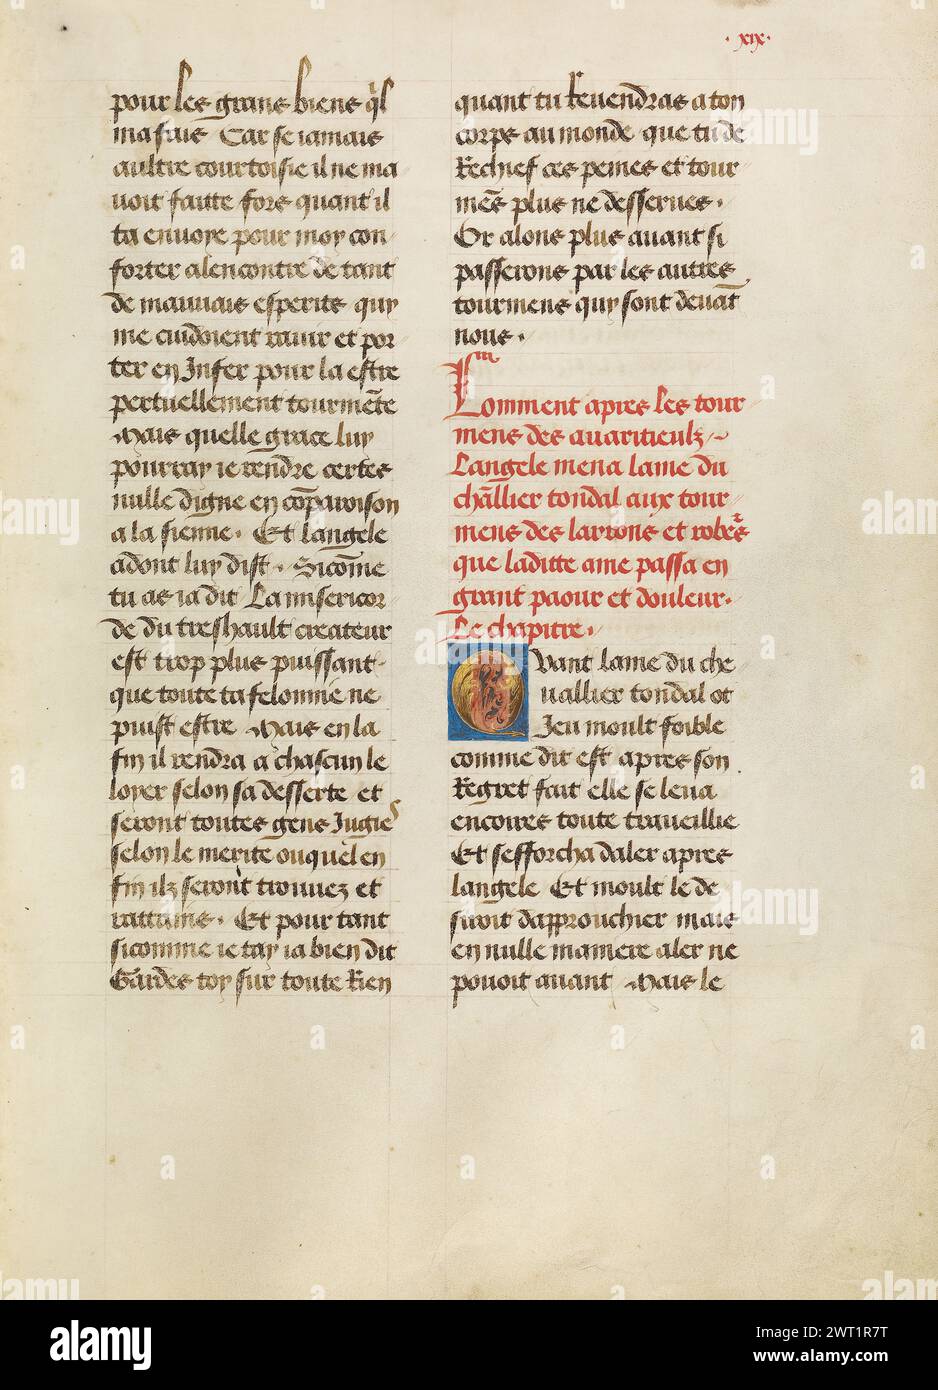 ·xix·
pour les grans biens q'l
ma fais Car se iamais
aultre courtoisie il ne ma
uoit faitte fors quant il
ta enuoye pour moy con
forter alencontre de tant
de mauuais esperits quy
me cuidoient rauir et por
ter en Infer pour la estre
pertuellement tourmēte
Mais quelle grace luy
pourray ie rendre certes
nulle digne en cōparoison
a la sienne · Et langele
adont luy dist · Sicōme
tu as ia dit La misericor
de du treshault createur
est trop plus puissant
que toute ta felonnie ne
puist estre Mais en la
fin il rendra a chascun le
loyer selon sa desserte et
seront toutes gens Jugies
selon le merite ouquel en
fin ilz seront trouuez et
rattains · Et pour tant
sicomme ie tay ia bien dit
Gardes toy sur toute Rien
quant tu Reuendras a ton
corps au monde que tu de
Rechief ces peines et tour
mēs plus ne desserues ·
Or alons plus auant si
passerons par les autres
tourmens quy sont deuāt
nous ·
Comment apres les tour
mens des auaricieulz
Langele mena lame du
chl̄lier tondal aux tour
mens des larrons et robe's
que laditte ame passa en
grant paour et douleur ·
Le chapitre · viiiᵉ
Quant lame du che
uallier tondal ot
Jeu moult foible
comme dit est apres son
Regret fait elle se leua
encores toute traueillie
Et sefforcha daler apres
langele Et moult le de
siroit dapprouchier mais
en nulle maniere aler ne
pouoit auant Mais le
alamy
Image ID: 2WT1R7T
www.alamy.com